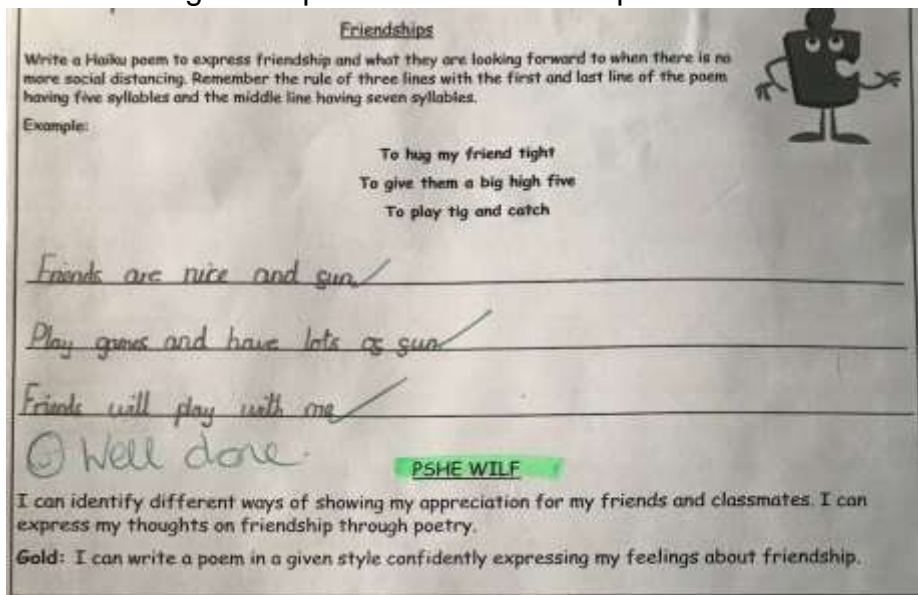 Friendships
Write a Haiku poem to express friendship and what they are looking forward to when there is no
more social distancing. Remember the rule of three lines with the first and last line of the poem
having five syllables and the middle line having seven syllables.
Example:
To hug my friend tight
To give them a big high five
To play tig and catch
Friends are nice and fun
Play games and have lots of fun
Friends will play with me
Well done.
PSHE WILF
I can identify different ways of showing my appreciation for my friends and classmates. I can
express my thoughts on friendship through poetry.
Gold: I can write a poem in a given style confidently expressing my feelings about friendship.